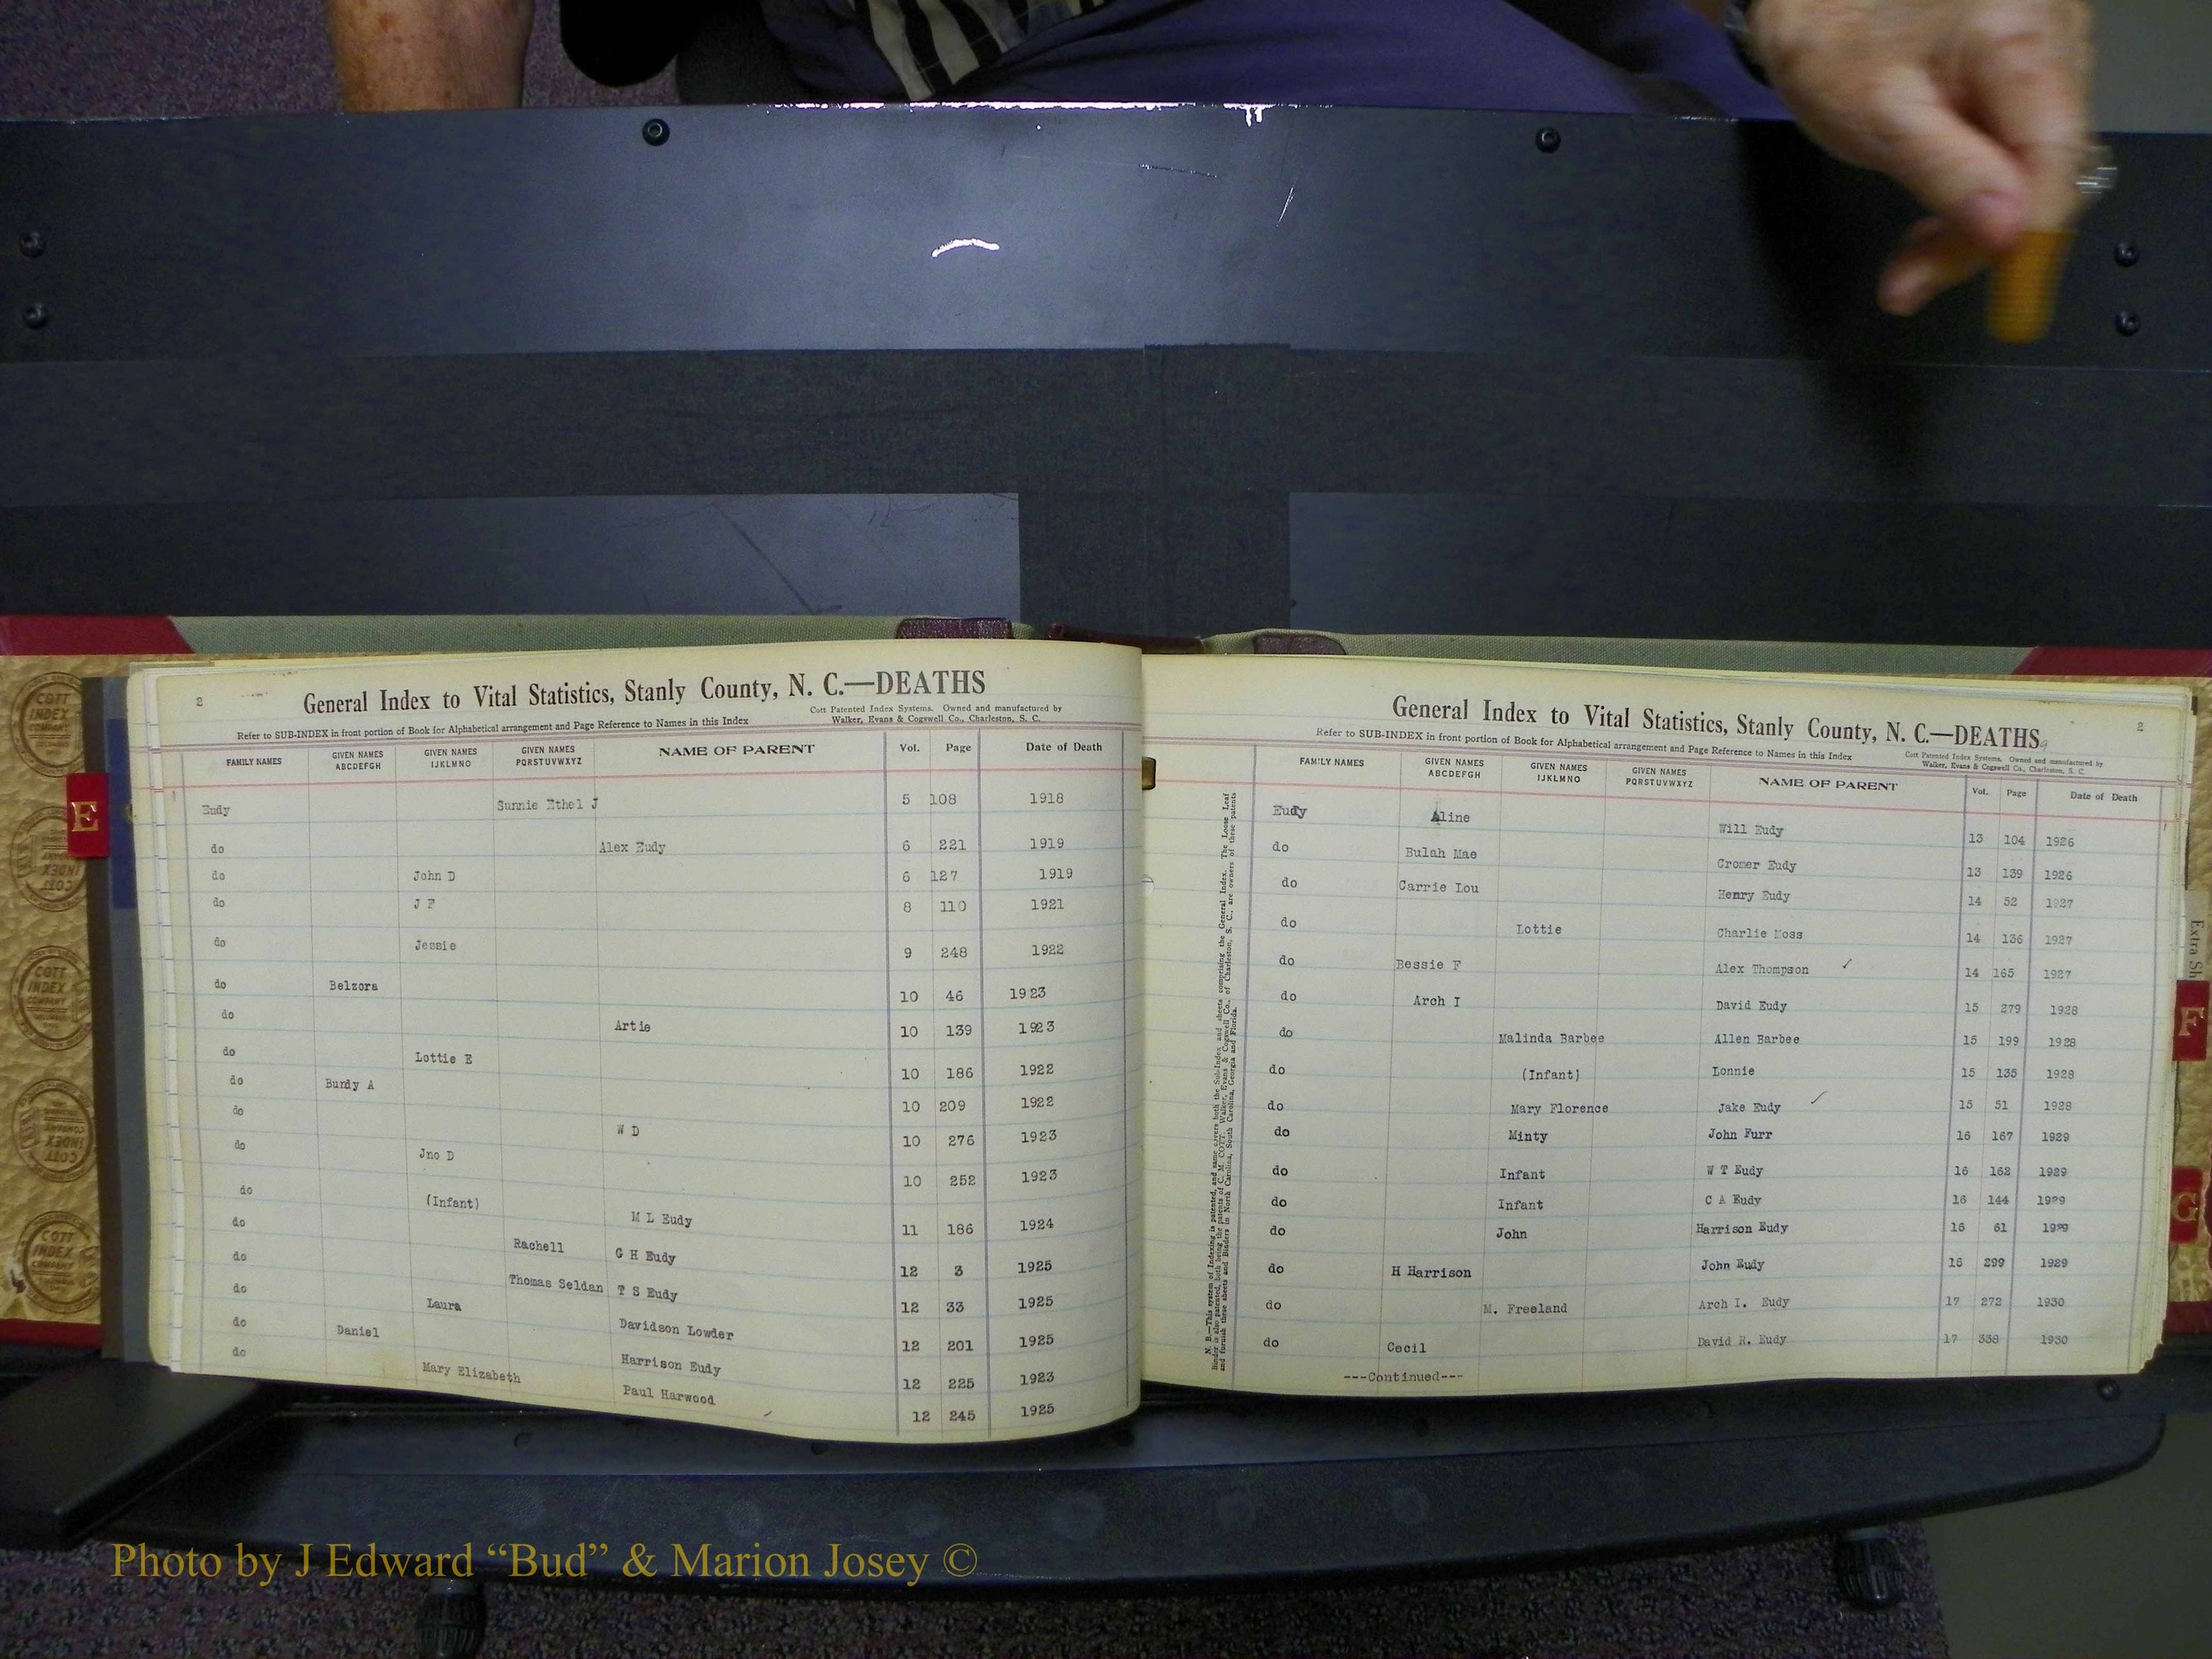 2
General Index to Vital Statistics, Stanly County, N. C.—DEATHS
Refer to SUB-INDEX in front portion of Book for Alphabetical arrangement and Page Reference to Names in this Index
Cott Patented Index Systems. Owned and manufactured by
Walker, Evans & Cogswell Co., Charleston, S. C.
FAMILY NAMES GIVEN NAMES ABCDEFGH GIVEN NAMES IJKLMNO GIVEN NAMES PQRSTUVWXYZ NAME OF PARENT Vol. Page Date of Death
Eudy Sunnie Ethel J 5 108 1918
do Alex Eudy 6 221 1919
do John D 6 127 1919
do J F 8 110 1921
do Jessie 9 248 1922
do Belzora 10 46 1923
do Artie 10 139 1923
do Lottie E 10 186 1922
do Burdy A 10 209 1922
do W D 10 276 1923
do Jno D 10 252 1923
do (Infant) M L Eudy 11 186 1924
do Rachell G H Eudy 12 3 1925
do Thomas Seldan T S Eudy 12 33 1925
do Laura Davidson Lowder 12 201 1925
do Daniel Harrison Eudy 12 225 1923
do Mary Elizabeth Paul Harwood 12 245 1925
2
General Index to Vital Statistics, Stanly County, N. C.—DEATHS
Refer to SUB-INDEX in front portion of Book for Alphabetical arrangement and Page Reference to Names in this Index
Cott Patented Index Systems. Owned and manufactured by
Walker, Evans & Cogswell Co., Charleston, S. C.
FAMILY NAMES GIVEN NAMES ABCDEFGH GIVEN NAMES IJKLMNO GIVEN NAMES PQRSTUVWXYZ NAME OF PARENT Vol. Page Date of Death
Eudy Aline Will Eudy 13 104 1926
do Bulah Mae Cromer Eudy 13 139 1926
do Carrie Lou Henry Eudy 14 52 1927
do Lottie Charlie Moss 14 136 1927
do Bessie F Alex Thompson ✓ 14 165 1927
do Arch I David Eudy 15 279 1928
do Malinda Barbee Allen Barbee 15 199 1928
do (Infant) Lonnie 15 135 1928
do Mary Florence Jake Eudy ✓ 15 51 1928
do Minty John Furr 16 167 1929
do Infant W T Eudy 16 162 1929
do Infant C A Eudy 16 144 1929
do John Harrison Eudy 16 61 1929
do H Harrison John Eudy 16 299 1929
do M. Freeland Arch I. Eudy 17 272 1930
do Cecil David R. Eudy 17 338 1930
---Continued---
N. B.—This system of Indexing is patented, and same covers both the Sub-Index and sheets comprising the General Index. The Loose Leaf
Binder is also patented, both being the patents of C. M. COTT. Walker, Evans & Cogswell Co., of Charleston, S. C., are owners of these patents
and furnish these sheets and Binders in North Carolina, South Carolina, Georgia and Florida.
E
F
G
Extra Sh
COTT
INDEX
COMPANY
COTT
INDEX
COMPANY
COTT
INDEX
COMPANY
Photo by J Edward “Bud” & Marion Josey ©